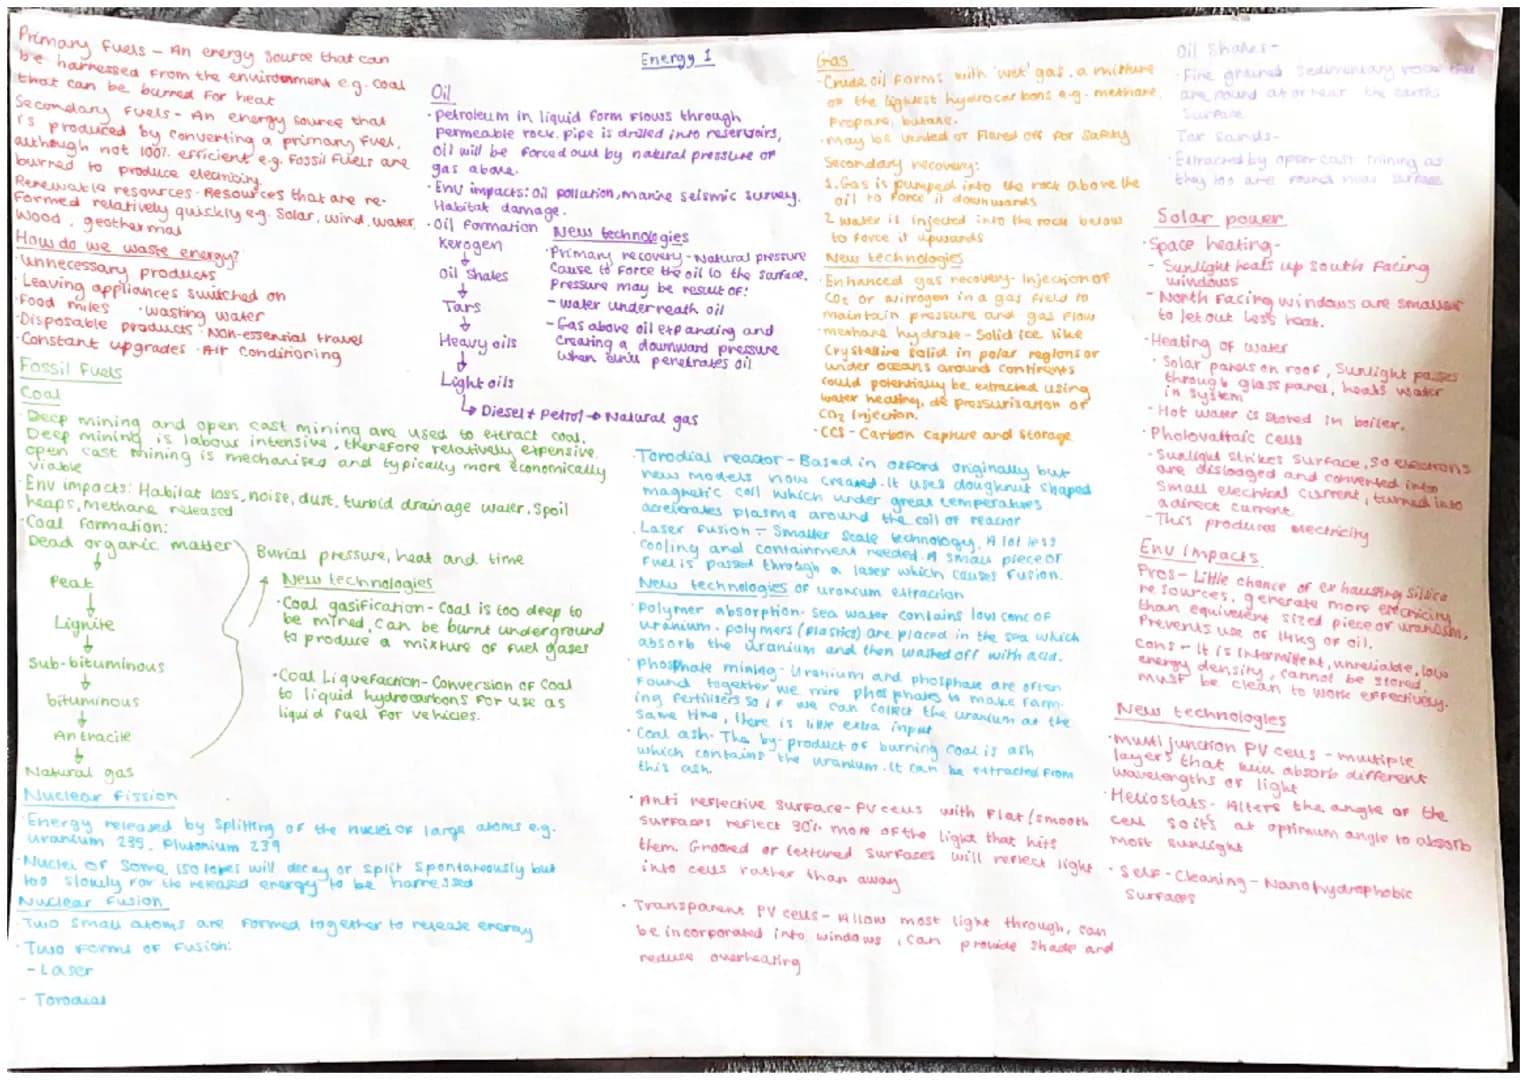 Energy 1
Primary Fuels - An energy source that can
be harnessed from the environment e.g. coal
that can be burred for heat
Secondary Fuels - An energy source that
is produced by converting a primary fuel,
although not 100% efficient e.g. fossil fuels are
burned to produce electricity.
Renewable resources - Resources that are re-
formed relatively quickly e.g. Solar, wind, water,
wood, geothermal
How do we waste energy?
· unnecessary products
· Leaving appliances switched on
· Food miles · wasting water
· Disposable products · Non-essential travel
· Constant upgrades · Air conditioning
Fossil Fuels
Coal
· Deep mining and open cast mining are used to extract coal.
Deep mining is labour intensive, therefore relatively expensive.
open cast mining is mechanised and typically more economically
viable
· Env impacts: Habitat loss, noise, dust, turbid drainage water, spoil
heaps, methane released
· Coal formation:
Dead organic matter
Peat
Lignite
Sub-bituminous
bituminous
Antracite
Natural gas
Burial pressure, heat and time
New technologies
· Coal gasification - Coal is too deep to
be mined, can be burnt underground
to produce a mixture of fuel gases
· Coal Liquefaction - Conversion of coal
to liquid hydrocarbons for use as
liquid fuel for vehicles.
Nuclear Fission
· Energy released by splitting of the nuclei of large atoms e.g.
Uranium 235, Plutonium 239
· Nuclei of some isotopes will decay or split spontaneously but
too slowly for the released energy to be harnessed
Nuclear Fusion
· Two small atoms are formed together to release energy
· Two forms of fusion:
- Laser
- Torodial
Oil
· petroleum in liquid form flows through
permeable rock. pipe is drilled into reservoirs,
oil will be forced out by natural pressure of
gas above.
· Env impacts: Oil pollution, marine seismic survey,
Habitat damage.
· Oil formation
Kerogen
Oil Shales
Tars
Heavy oils
Light oils
Diesel + Petrol → Natural gas
New technologies
· Primary recovery - Natural pressure
cause to force the oil to the surface.
Pressure may be result of:
- water underneath oil
- Gas above oil expanding and
creating a downward pressure
when drill penetrates oil
Gas
· Crude oil forms with 'wet' gas, a mixture
of the lightest hydrocarbons e.g. methane,
Propane, butane.
· may be vented or flared off for safety
Secondary recovery:
1. Gas is pumped into the rock above the
oil to force it downwards
2 water is injected into the rock below
to force it upwards
New technologies
· Enhanced gas recovery - Injection of
CO2 or nitrogen in a gas field to
maintain pressure and gas flow
· methane hydrate - Solid ice like
Crystalline solid in polar regions or
under oceans around continents
could potentially be extracted using
water heating, de pressurisation or
CO2 Injection.
· CCS - Carbon capture and storage
· Torodial reactor - Based in oxford originally but
new models now created. It uses doughnut shaped
magnetic coil which under great temperatures
accelerates plasma around the coil of reactor
· Laser fusion - Smaller scale technology. A lot less
cooling and containment needed. A small piece of
fuel is passed through a laser which causes fusion.
New technologies of uranium extraction
· Polymer absorption - Sea water contains low conc of
uranium. polymers (plastics) are placed in the sea which
absorb the uranium and then washed off with acid.
· Phosphate mining - Uranium and phosphate are often
found together we mine phosphates to make farm-
ing fertilisers so if we can collect the uranium at the
same time, there is little extra input
· Coal ash - The by-product of burning coal is ash
which contains the uranium. It can be extracted from
this ash.
· Anti reflective surface - PV cells with flat/smooth
surfaces reflect 30% more of the light that hits
them. Grooved or textured surfaces will reflect light
into cells rather than away
· Transparent PV cells - Allow most light through, can
be incorporated into windows, can provide shade and
reduce overheating
Oil Shales -
· Fine grained sedimentary rocks that
are found at or near the earths
surface
Tar Sands -
· Extracted by open cast mining as
they too are found near surface
Solar power
· Space heating -
- Sunlight heats up south facing
windows
- North facing windows are smaller
to let out less heat.
· Heating of water
· Solar panels on roof, sunlight passes
through glass panel, heats water
in system
- Hot water is stored in boiler.
· Photovoltaic cells
- Sunlight strikes surface, so electrons
are dislodged and converted into
small electrical current, turned into
a direct current
- This produces electricity
Env impacts
Pros - Little chance of exhausting silica
resources, generate more electricity
than equivelent sized piece of uranium,
Prevents use of 14kg of oil.
Cons - It is intermittent, unreliable, low
energy density, cannot be stored,
must be clean to work effectively.
New technologies
· multi junction PV cells - multiple
layers that will absorb different
wavelengths of light
· Heliostats - Alters the angle of the
cell so its at optimum angle to absorb
most sunlight
· Self-Cleaning - Nanohydrophobic
surfaces